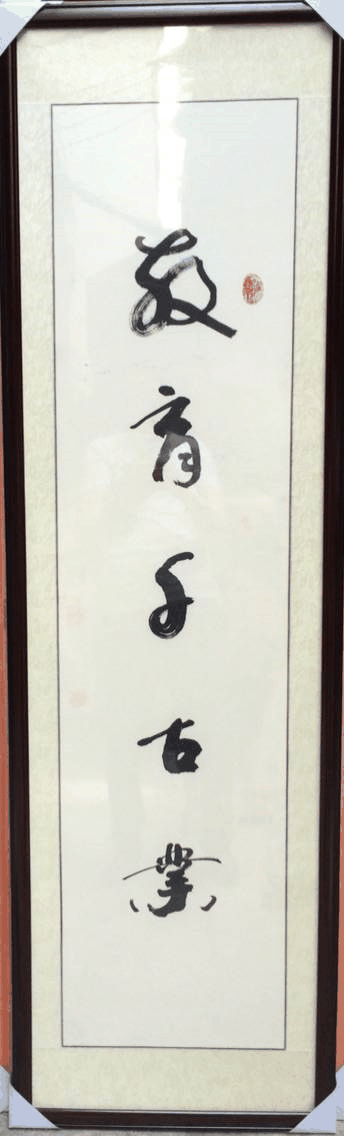 教育千古業